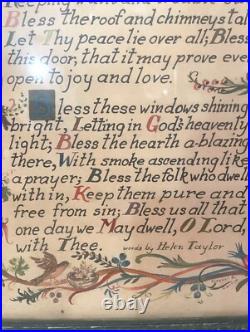 Bless the roof and chimneys ta
Let Thy peace lie over all; Bless
this door, that it may prove ever
open to joy and love.
Bless these windows shining
bright, Letting in God's heavenly
light; Bless the hearth a-blazing
there, With smoke ascending like
a prayer; Bless the folk who dwell
within, Keep them pure and
free from sin; Bless us all that
one day we May dwell, O Lord,
with Thee.
words by, Helen Taylor